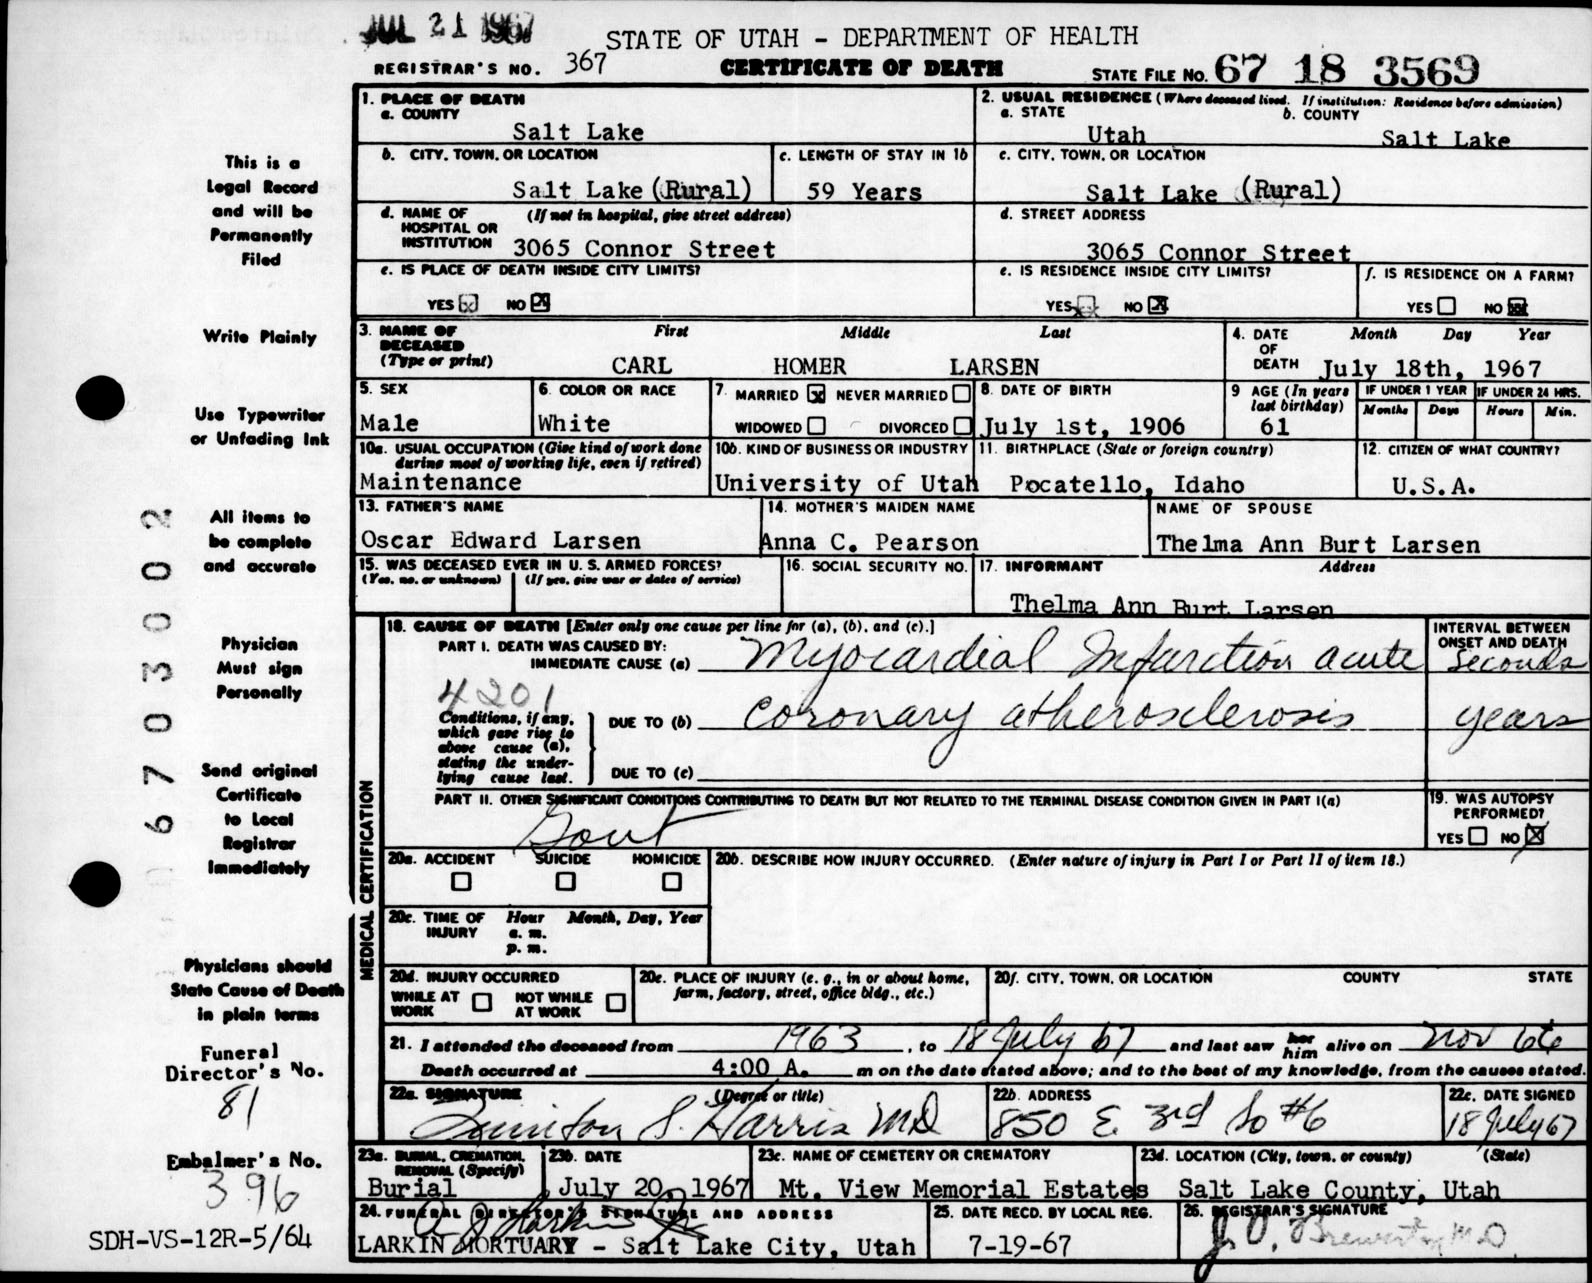 JUL 21 1967
STATE OF UTAH - DEPARTMENT OF HEALTH
REGISTRAR'S NO. 367
CERTIFICATE OF DEATH
STATE FILE NO. 67 18 3569
This is a
Legal Record
and will be
Permanently
Filed
Write Plainly
Use Typewriter
or Unfading Ink
All items to
be complete
and accurate
Physician
Must sign
Personally
Send original
Certificate
to Local
Registrar
Immediately
Physicians should
State Cause of Death
in plain terms
Funeral
Director's No.
81
Embalmer's No.
396
SDH-VS-12R-5/64
6703002
1. PLACE OF DEATH
a. COUNTY
Salt Lake
2. USUAL RESIDENCE (Where deceased lived. If institution: Residence before admission)
a. STATE b. COUNTY
Utah Salt Lake
b. CITY, TOWN, OR LOCATION
Salt Lake (Rural)
c. LENGTH OF STAY IN 1b
59 Years
c. CITY, TOWN, OR LOCATION
Salt Lake (Rural)
d. NAME OF (If not in hospital, give street address)
HOSPITAL OR
INSTITUTION 3065 Connor Street
d. STREET ADDRESS
3065 Connor Street
e. IS PLACE OF DEATH INSIDE CITY LIMITS?
YES NO X
e. IS RESIDENCE INSIDE CITY LIMITS?
YES NO X
f. IS RESIDENCE ON A FARM?
YES NO X
3. NAME OF First Middle Last
DECEASED
(Type or print) CARL HOMER LARSEN
4. DATE Month Day Year
OF
DEATH July 18th, 1967
5. SEX
Male
6. COLOR OR RACE
White
7. MARRIED X NEVER MARRIED
WIDOWED DIVORCED
8. DATE OF BIRTH
July 1st, 1906
9 AGE (In years
last birthday)
61
IF UNDER 1 YEAR IF UNDER 24 HRS.
Months Days Hours Min.
10a. USUAL OCCUPATION (Give kind of work done
during most of working life, even if retired)
Maintenance
10b. KIND OF BUSINESS OR INDUSTRY
University of Utah
11. BIRTHPLACE (State or foreign country)
Pocatello, Idaho
12. CITIZEN OF WHAT COUNTRY?
U.S.A.
13. FATHER'S NAME
Oscar Edward Larsen
14. MOTHER'S MAIDEN NAME
Anna C. Pearson
NAME OF SPOUSE
Thelma Ann Burt Larsen
15. WAS DECEASED EVER IN U. S. ARMED FORCES?
(Yes, no, or unknown) (If yes, give war or dates of service)
16. SOCIAL SECURITY NO.
17. INFORMANT Address
Thelma Ann Burt Larsen
MEDICAL CERTIFICATION
18. CAUSE OF DEATH [Enter only one cause per line for (a), (b), and (c).]
PART I. DEATH WAS CAUSED BY:
IMMEDIATE CAUSE (a) Myocardial Infarction acute
INTERVAL BETWEEN
ONSET AND DEATH
seconds
4201
Conditions, if any,
which gave rise to
above cause (a),
stating the under-
lying cause last.
DUE TO (b) coronary atherosclerosis
years
DUE TO (c)
PART II. OTHER SIGNIFICANT CONDITIONS CONTRIBUTING TO DEATH BUT NOT RELATED TO THE TERMINAL DISEASE CONDITION GIVEN IN PART I(a)
Gout
19. WAS AUTOPSY
PERFORMED?
YES NO X
20a. ACCIDENT SUICIDE HOMICIDE
20b. DESCRIBE HOW INJURY OCCURRED. (Enter nature of injury in Part I or Part II of item 18.)
20c. TIME OF Hour Month, Day, Year
INJURY a. m.
p. m.
20d. INJURY OCCURRED
WHILE AT NOT WHILE
WORK AT WORK
20e. PLACE OF INJURY (e. g., in or about home,
farm, factory, street, office bldg., etc.)
20f. CITY, TOWN, OR LOCATION COUNTY STATE
21. I attended the deceased from 1963, to 18 July 67 and last saw her him alive on Nov 66
Death occurred at 4:00 A. m on the date stated above; and to the best of my knowledge, from the causes stated.
22a. SIGNATURE (Degree or title)
Quinton S. Harris MD
22b. ADDRESS
850 E 3rd So #6
22c. DATE SIGNED
18 July 67
23a. BURIAL, CREMATION,
REMOVAL (Specify)
Burial
23b. DATE
July 20, 1967
23c. NAME OF CEMETERY OR CREMATORY
Mt. View Memorial Estates
23d. LOCATION (City, town, or county) (State)
Salt Lake County, Utah
24. FUNERAL DIRECTOR'S SIGNATURE AND ADDRESS
LARKIN MORTUARY - Salt Lake City, Utah
25. DATE RECD. BY LOCAL REG.
7-19-67
26. REGISTRAR'S SIGNATURE